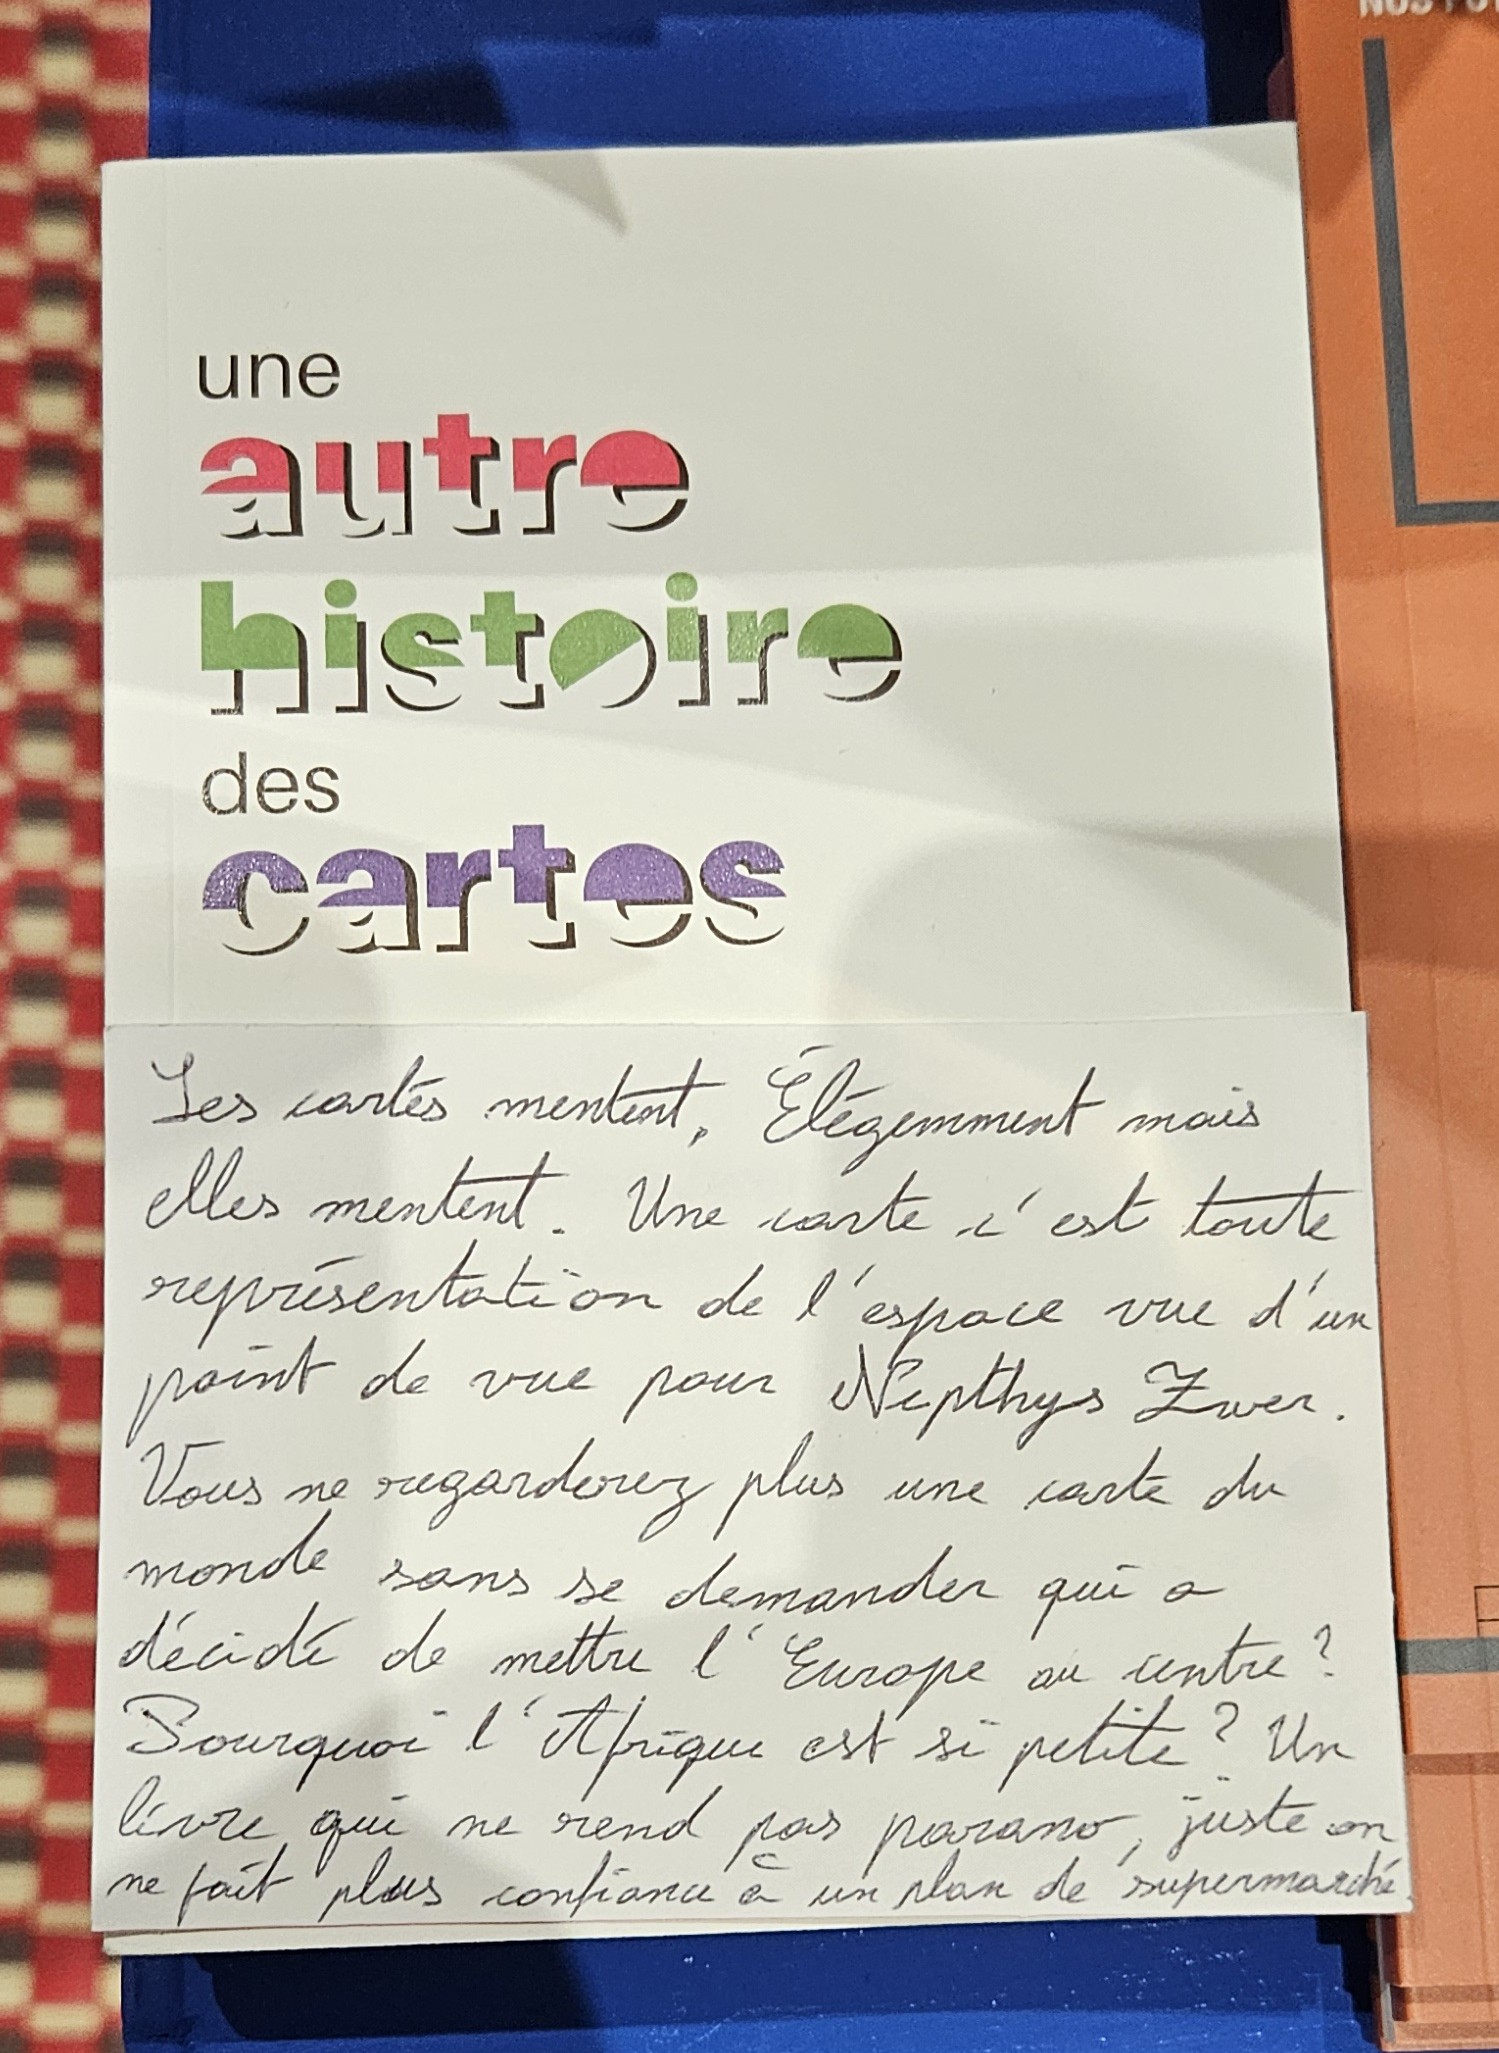 une
autre
histoire
des
cartes
Les cartes mentent. Élégemment mais
elles mentent. Une carte c'est toute
représentation de l'espace vue d'un
point de vue pour Nepthys Zwer.
Vous ne regarderez plus une carte du
monde sans se demander qui a
décidé de mettre l'Europe au centre ?
Pourquoi l'Afrique est si petite ? Un
livre qui ne rend pas parano, juste on
ne fait plus confiance à un plan de supermarché.